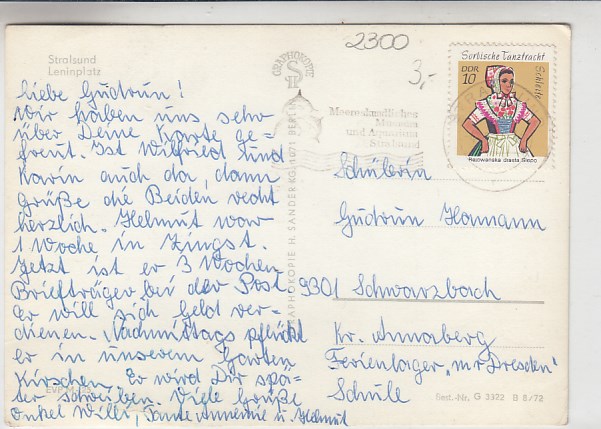 Stralsund
Leninplatz
2300
3,-
GRAPHOKOPIE
Sorbische Tanztracht
DDR
10
Schleife
Meereskundliches
Museum
und Aquarium
Stralsund
GRAPHOKOPIE H. SANDER KG, 1071 BERLIN
liebe Gudrun!
Wir haben uns sehr
über Deine Karte ge-
freut. Ist Wilfried und
Karin auch da, dann
grüße die Beiden recht
herzlich. Helmut war
1 Woche in Zingst.
Jetzt ist er 3 Wochen
Briefträger bei der Post
er will sich Geld ver-
dienen. Nachmittags pflückt
er in unserem Garten
Kirschen. Er wird Dir spä-
ter schreiben. Viele Grüße
Onkel Willi, Tante Annemie u. Helmut
Schülerin
Gudrun Hamann
9301 Schwarzbach
Kr. Annaberg
Ferienlager, "m.r Dresden"
Schule
Best.-Nr. G 3322 B 8/72